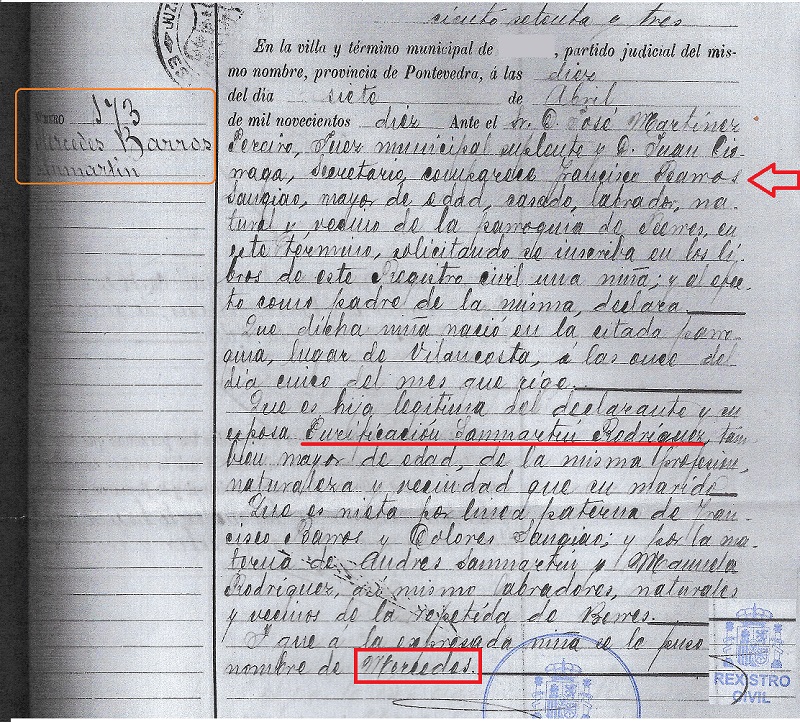 ciento setenta y tres
En la villa y término municipal de , partido judicial del mis-
mo nombre, provincia de Pontevedra, á las diez
del día siete de Abril
de mil novecientos diez Ante el Sr. D. José Martínez
Pereiro, Juez municipal suplente y D. Juan Cio-
rraga, Secretario, compareco Francisco Barros
Sangiao, mayor de edad, casado, labrador, na-
tural y vecino de la parroquia de Berres, en
este término, solicitando se inscriba en los li-
bros de este Registro civil una niña; y al efec-
to como padre de la misma, declara
Que dicha niña nació en la citada parro-
quia, lugar de Vilancosta, á las once del
día cinco del mes que rige.
Que es hija legítima del declarante y su
esposa Purificación Sanmartín Rodríguez, tam-
bien mayor de edad, de la misma profesion,
naturaleza y vecindad que su marido
Que es nieta por linea paterna de Fran-
cisco Barros y Dolores Sangiao; y por la ma-
terna de Andres Sanmartín y Manuela
Rodríguez, así mismo labradores, naturales
y vecinos de la repetida de Berres.
I que a la expresada niña se le puso
nombre de Mercedes.
173
Mercedes Barros
Sanmartín
REXISTRO
CIVIL